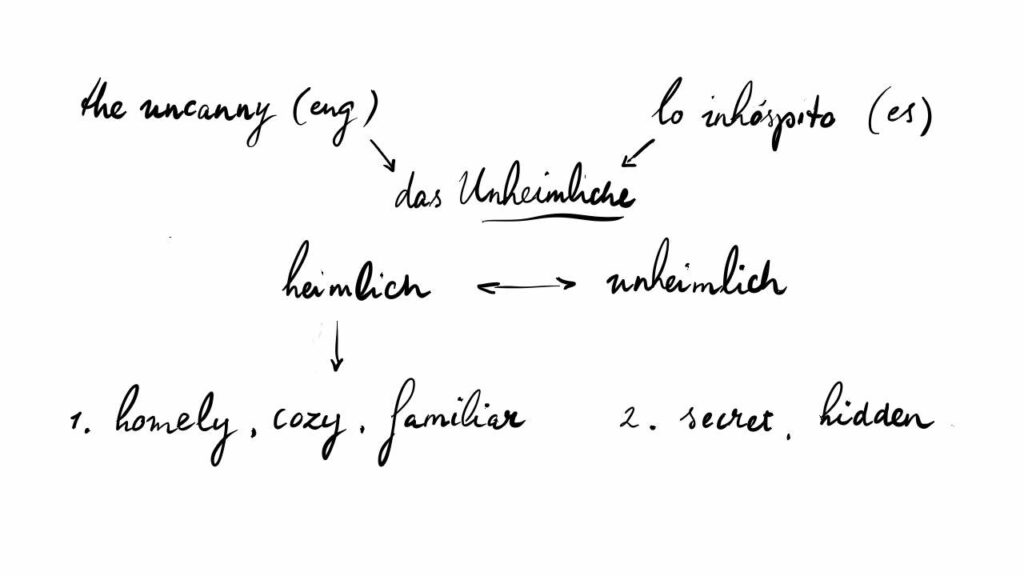 the uncanny (eng) lo inhóspito (es)
das Unheimliche
heimlich ↔ unheimlich
1. homely, cozy, familiar 2. secret, hidden